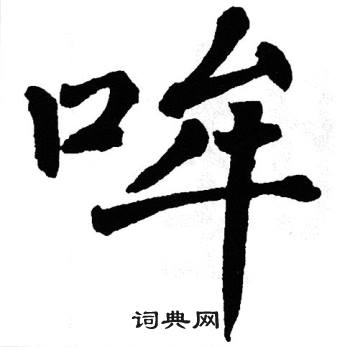 哞
词典网